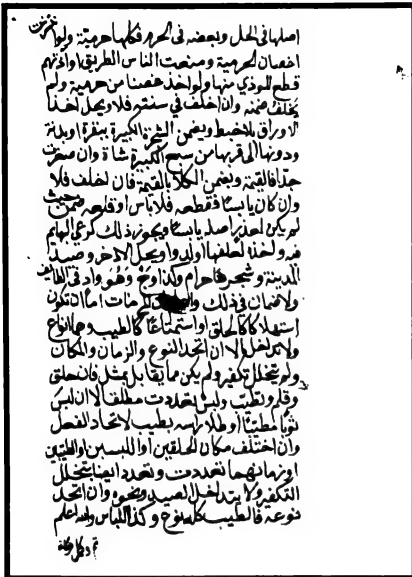 اصلها في الحل وبعضه في الحرم فكلها حرمية ولو انتشرت
اغصان الحرمية ومنعت الناس الطريق او آذتهم
قطع الموذي منها ولو اخذ غصنا من حرمية ولم
يخلف ضمنه وان اخلف في سنته فلا ويحل اخذ
الاوراق بلا خبط ويضمن الشجرة الكبيرة ببقرة او بدنة
ودونها الى قربها من سبع الكبيرة شاة وان صغرت
جدا فالقيمة ويضمن الكلا بالقيمة فان اخلف فلا
وان كان يابسا فقطعه فلا باس او قلعه ضمن حيث
لم يكن اصله يابسا ويجوز ذلك كرعي البهايم
فيه واخذه لعلفها او لدوا ويحل الاذخر وصيد
المدينة وشجرها حرام وكذا وج وهو واد في الطايف
ولا ضمان في ذلك المحرمات اما ان تكون
استهلاكا كالحلق او استمتاعا كالطيب وهما انواع
ولا تداخل الا ان اتحد النوع والزمان والمكان
ولم يتخلل تكفير ولم يكن مما يقابل بمثل فان حلق
وقلم وتطيب ولبس تعددت مطلقا الا ان لبس
ثوبا مطيبا او طلا راسه بطيب لاتحاد الفعل
وان اختلف مكان الحلقين او اللبسين او الطيبين
او زمانهما تعددت وتعدد ايضا بتخلل
التكفير ولا يتداخل الصيد ونحوه وان اتحد
نوعه فالطيب كله نوع وكذا اللباس والله اعلم